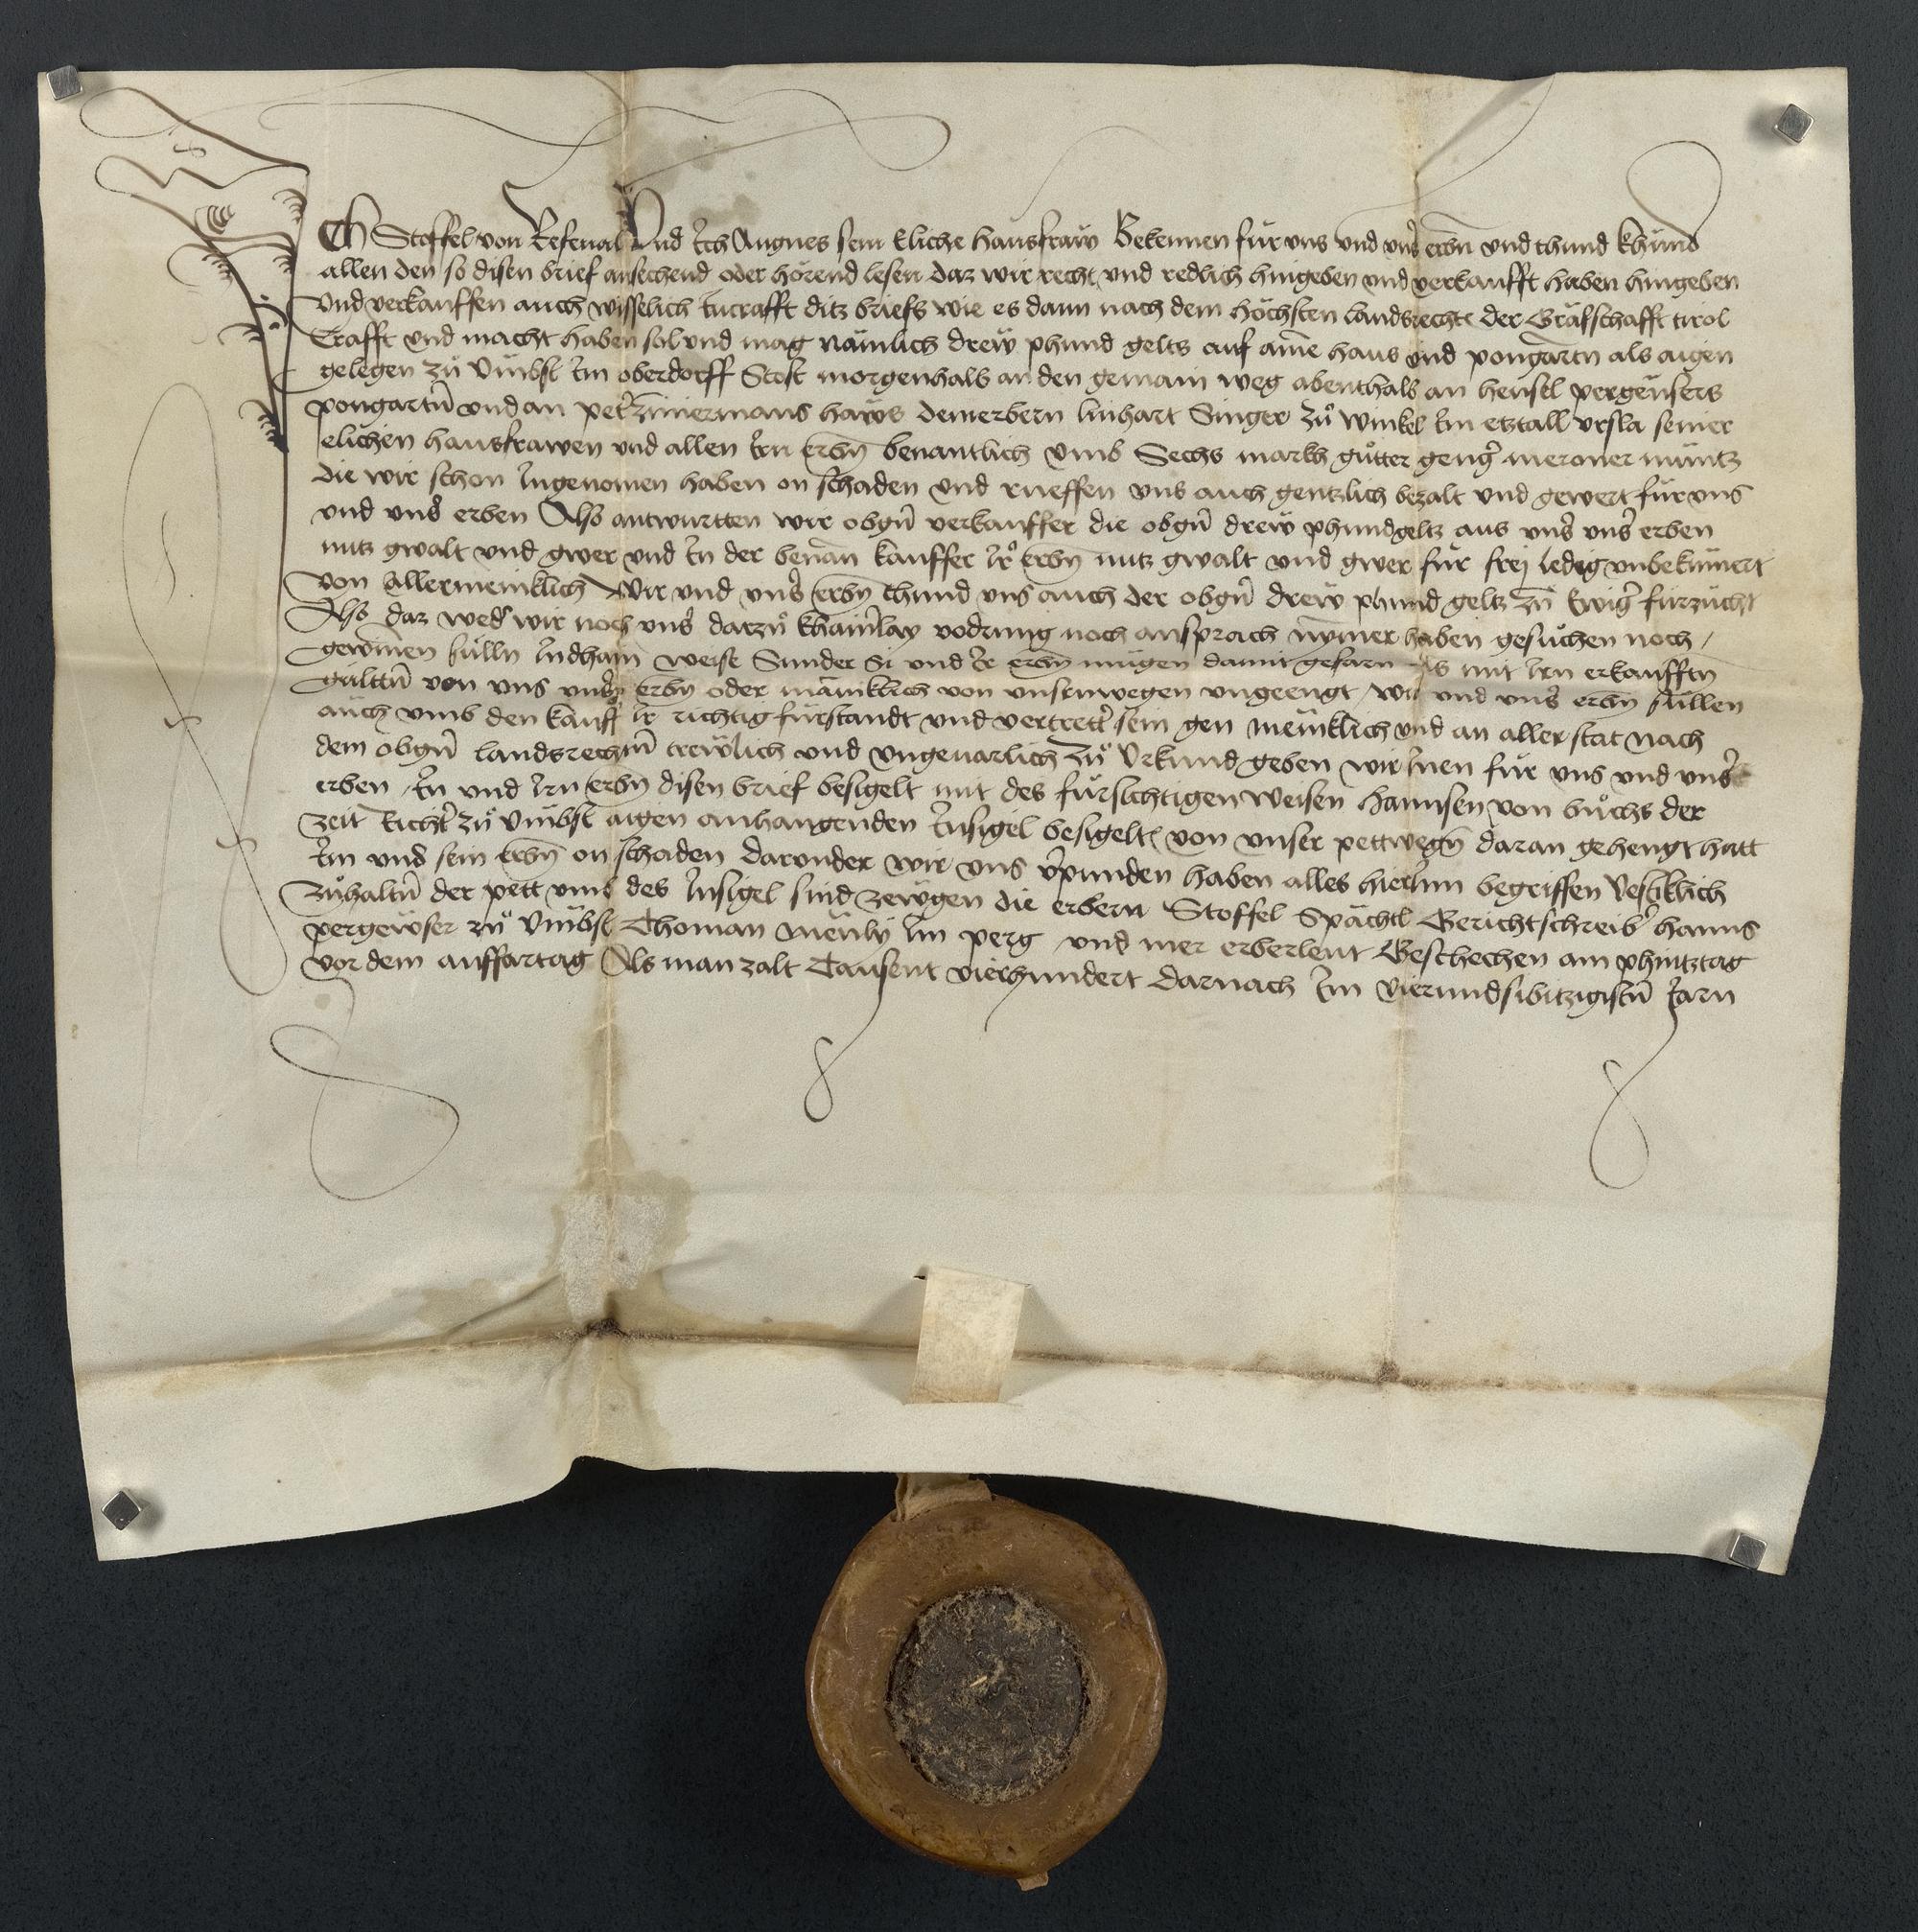 Ich Stoffel von Refenal Und Ich Angnes sein Eliche hausfraw Bekennen für uns und uns erbn und thund khund
allen den so disen brief ansechend oder hörend lesen daz wir recht und redlich hingeben und verkaufft haben hingeben
und verkauffen auch wisselich Incrafft ditz briefs wie es dann nach dem höchsten landsrecht der Grafschafft tirol
Crafft und macht haben sol und mag nämlich drew phund gelts auf aine haus und pongartn als aigen
gelegen zu Umbst Im oberdorff Stost morgenhalb an den gemain weg abenthalb an hensel pergeusers
pongartn und an peter zimermans haws dem erbern linhart Singer zu winkel Im etztall ursla seiner
elichen hausfrawen und allen Irn erbn benantlich umb Sechs markh gutter genger meraner müntz
die wir schon Ingenomen haben on schaden und rueffen uns auch gentzlich bezalt und gewert für uns
und uns erben Also antwurtten wir obgn verkauffer die obgn drew phund geltz aus uns uns erben
nutz gwalt und gwer und In der benan kauffer Ir erbn nutz gwalt und gwer für frej ledig unbekümert
von allermeinklich Wir und uns erbn thund uns auch der obgn drew phund geltz zu Ewiger fürzücht
Also daz weder wir noch uns darzu khainlay vodrung noch ansprach nymer haben gesuchen noch /
gewinen sülln Indhain weise Sunder Si und Ir erbn mügen damit gefarn als mit Irn erkaufftn
gülttn von uns uns erbn oder mäniklich von unsernwegen ungeengt / wir und uns erbn süllen
auch umb den kauff Ir richtig fürstandt und vertretter sein gen meniklich und an aller stat nach
dem obgn landsrechtn trewlich und ungevarlich zu Urkund geben wir Inen für uns und uns
erben / In und Irn erbn disen brief besigelt mit des fürsichtigen weisen hannsen von buchs der
zeit Richter zu Umbst aigen anhangenden Insigel besigelt von unser pettwegn daran gehengt hatt
Im und sein erbn on schaden darunder wir uns verpunden haben alles hierInn begriffen Vestiklich
zuhaltn der pett umb des Insigel sind zewgen die erbern Stoffel Spächtl Gerichtschreiber hanns
pergewser zu Umbst Thoman Menly Im perg und mer erberleut Geschechen am phintztag
vor dem auffartag Als man zalt Tausent vierhundert darnach Im vierundsibitzigistn Iarn